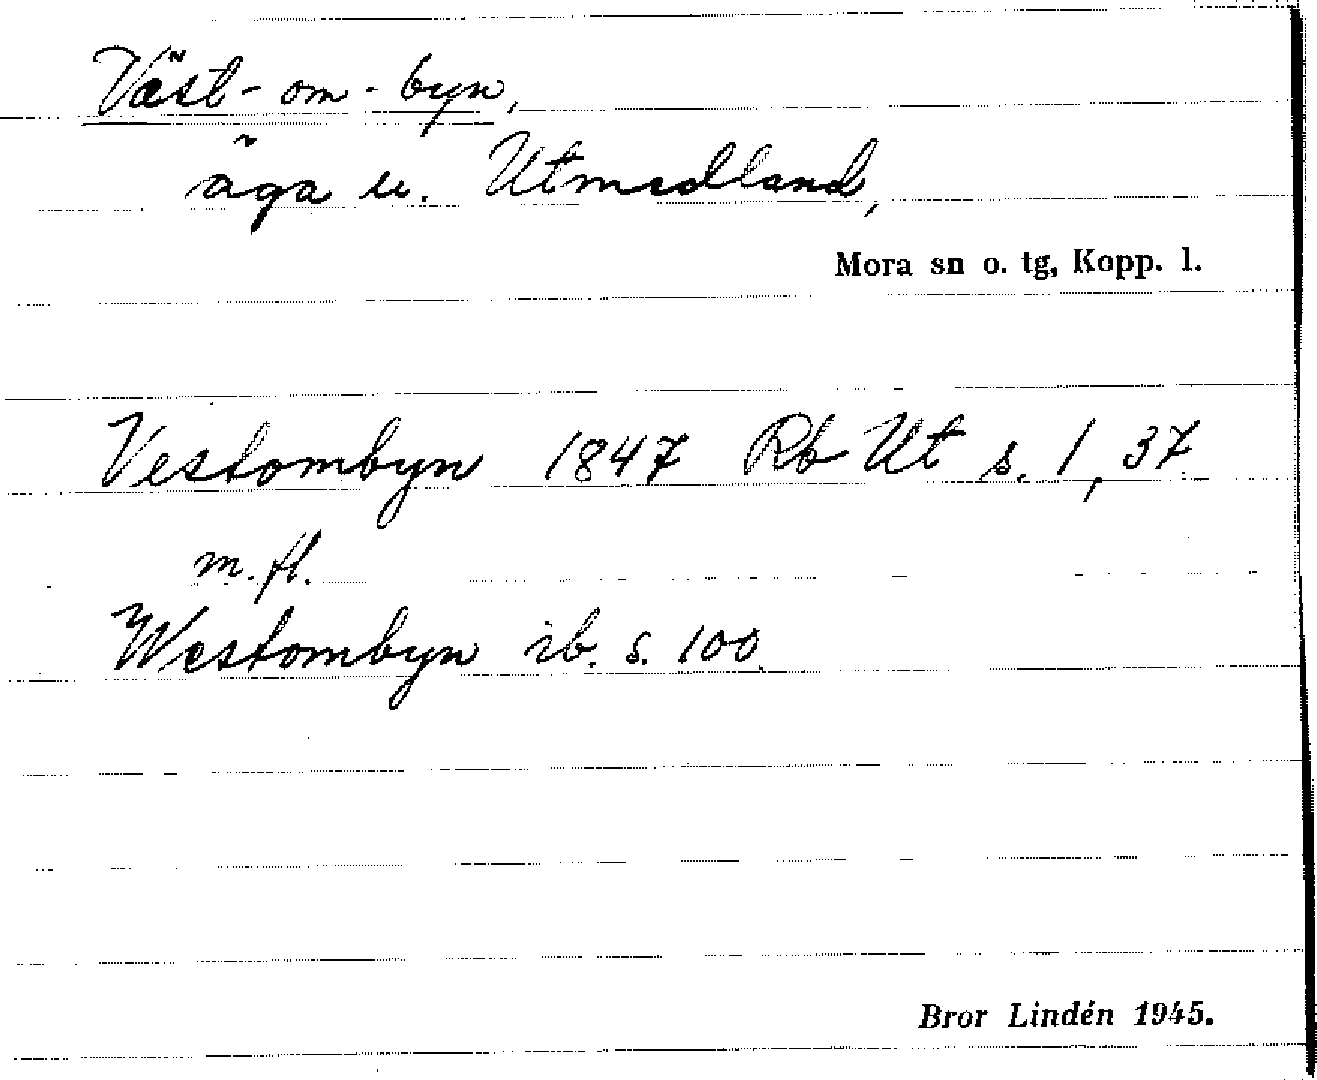 Väst-om-byn,
äga u. Utmedland,
Mora sn o. tg, Kopp. l.
Vestombyn 1847 Rb Ut s. 1, 37
m.fl.
Westombyn ib. s. 100.
Bror Lindén 1945.